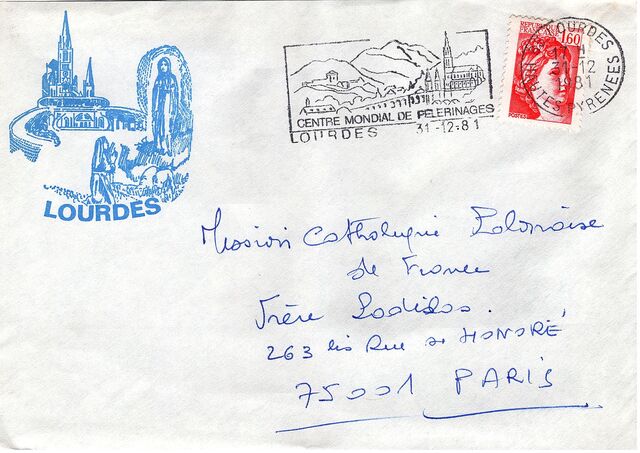 LOURDES
CENTRE MONDIAL DE PELERINAGES
LOURDES 31-12-81
REPUBLIQUE FRANCAISE
1,60
POSTES
LOURDES
31-12
1981
HAUTES-PYRENEES
Mission Catholique Polonaise
de France
Frère
263 bis Rue St HONORÉ
75001 PARIS